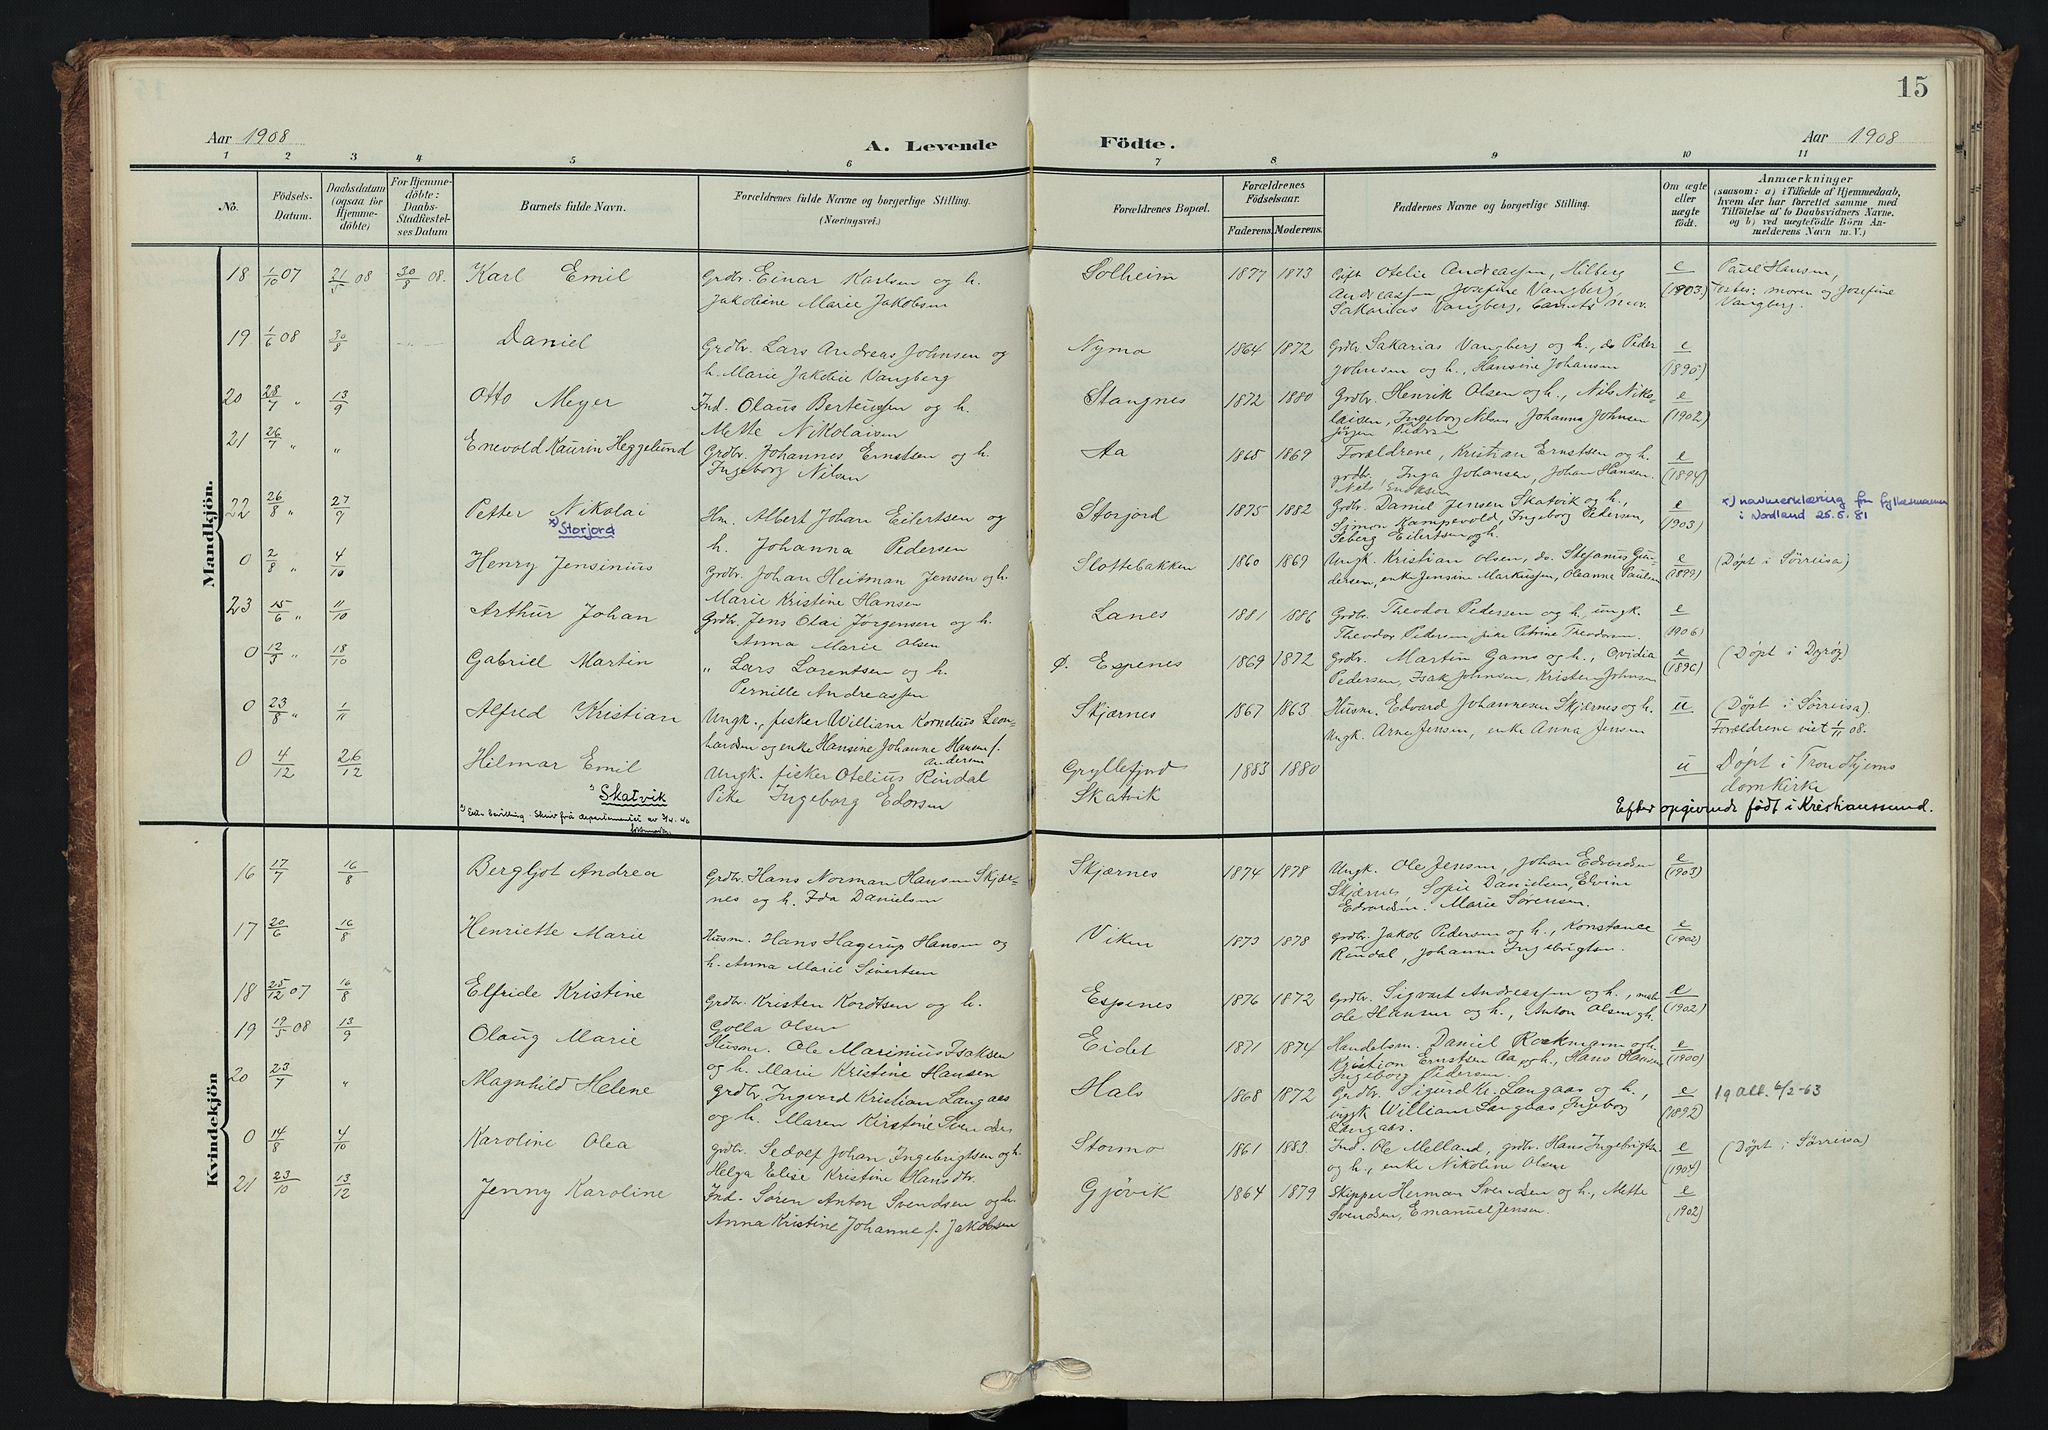 15
Aar 1908
A. Levende Födte.
Aar 1908
1 2 3 4 5 6 7 8 9 10 11
No.
Födsels-Datum.
Daabsdatum (ogsaa for Hjemmedöbte)
For Hjemmedöbte: Daabs-Stadfestelses Datum
Barnets fulde Navn.
Forældrenes fulde Navne og borgerlige Stilling. (Næringsvei.)
Forældrenes Bopæl.
Forældrenes Födselsaar.
Faderens. Moderens.
Faddernes Navne og borgerlige Stilling.
Om ægte eller uægte födt.
Anmærkninger
(saasom: a) i Tilfælde af Hjemmedaab,
hvem der har forrettet samme med
Tilföielse af to Daabsvidners Navne,
og b) ved uægtefödte Börn An-
melderens Navn m. V.)
Mandkjön.
18 1/10 07 21/5 08 30/8 08. Karl Emil Grdbr. Einar Karlsen og h. Solheim 1877 1873 Gift Otelie Andreassen, Hilberg e Paul Hansen,
Jakobine Marie Jakobsen Andreassen, Josefine Vangberg, (1903) Testes: moren og Josefine
Sakarias Vangberg, barnets mor. Vangberg.
19 1/6 08 30/8 Daniel Grdbr. Lars Andreas Johnsen og Nymo 1864 1872 Grdbr. Sakarias Vangberg og h., do Peder e
h. Marie Jakobie Vangberg Johnsen og h., Hansine Johansen (1895)
20 28/7 " 13/9 Otto Meyer Ind. Olaus Berteussen og h. Stangnes 1872 1880 Grdbr. Henrik Olsen og h., Nils Niko- e
Mette Nikolaisen laisen, Ingeborg Nilsen, Johanna Johnsen (1902)
Jörgen Pedersen
21 26/7 " " Enevold Kaurin Heggelund Grdbr. Johannes Ernstsen og h. Aa 1865 1869 Forældrene, Kristian Ernstsen og h. e
Ingeborg Nilsen grdbr. Inga Johansen, Johan Hansen. (1894)
Nels Eriksen
22 26/8 " 27/9 Petter Nikolai Hm. Albert Johan Eilertsen og Storjord 1875 1882 Grdbr. Daniel Jensen Skatvik og h., e x) navneerklæring fra fylkesmannen
x) Storjord h. Johanna Pedersen Simon Kampevold, Ingeborg Pedersen, (1903) i Nordland 25.5.81
Seberg Eilertsen og h.
0 2/8 " 4/10 Henry Jensinius Grdbr. Johan Heitman Jensen og h. Slottebakken 1860 1869 Ungk. Kristian Olsen, do. Stefanus Gun- e (Døpt i Sørreisa)
Marie Kristine Hansen dersen, enke Jensine Markussen, Oleanna Paulsen (1899)
23 15/6 " 11/10 Arthur Johan Grdbr. Jens Olai Jørgensen og h. Lanes 1881 1886 Grdbr. Theodor Pedersen og h, ungk. e
Anna Marie Olsen Theodor Pedersen, pike Petrine Theodorsen. (1906)
0 12/9 " 18/10 Gabriel Martin " Lars Lorentsen og h. Ø. Espenes 1869 1872 Grdbr. Martin Gams og h., Ovidia e (Døpt i Dyrøy)
Pernille Andreassen Pedersen, Isak Johnsen, Kristen Johnsen (1896)
0 23/8 " 1/11 Alfred Kristian Ungk., fisker William Kornelius Leon- Skjærnes 1867 1863 Husm. Edvard Johannesen Skjærnes og h. u (Døpt i Sørreisa).
hardsen og enke Hansine Johanne Hansen f. Ungk. Arne Jensen, enke Anna Jensen Forældrene viet 1/11 08.
Andersen
0 4/12 26/12 Hilmar Emil Ungk. fisker Otelius Rindal Gryllefjord 1883 1880 u Døpt i Trondhjems
x) Skatvik Pike Ingeborg Edorsen Skatvik domkirke
Efter opgivende født i Kristianssund.
x) Etter bevilling. Skriv frå departementet av
Kvindekjön
16 17/7 16/8 Bergljot Andrea Grdbr. Hans Norman Hansen Skjær- Skjærnes 1874 1878 Ungk. Ole Jensen, Johan Edvardsen e
nes og h. Ida Danielsen Skjærnes, Sofie Danielsen, Elvine (1903)
Edvardsen. Marie Sørensen.
17 20/6 16/8 Henriette Marie Husm. Hans Hagerup Hansen og Viken 1873 1878 Grdbr. Jakob Pedersen og h., Konstance e
h. Anna Marie Sivertsen Rindal, Johanne Ingebrigtsen. (1902)
18 25/12 07 16/8 Elfride Kristine Grdbr. Kristen Kordtsen og h. Espenes 1876 1872 Grdbr. Sigvart Andreassen og h., e
Golla Olsen Ole Hansen og h., Anton Olsen og h. (1902)
19 19/5 08 13/9 Olaug Marie Husm. Ole Marinius Isaksen Eidet 1871 1874 Handelsm. Daniel Rockmann og h. e
og h. Marie Kristine Hansen Kristian Ernstsen Aa og h., Hans Hansen (1900)
Ingeborg Pedersen.
20 23/7 " Magnhild Helene Grdbr. Ingvard Kristian Langaas Hals 1868 1872 Grdbr. Sigurd Kr. Langaas og h., e 1g att. 6/2-63
og h. Maren Kirstine Svendsen ungk William Langaas Ingeborg (1892)
Langaas.
0 14/8 4/10 Karoline Olea Grdbr. Sedolf Johan Ingebrigtsen og h. Stormo 1861 1883 Ind. Ole Melland, grdbr. Hans Ingebrigtsen e (Døpt i Sørreisa)
Helga Elise Kristine Hansdtr. og h., enke Nikoline Olsen (1904)
21 23/10 13/12 Jenny Karoline Ind. Søren Anton Svendsen og h. Gjøvik 1864 1879 Skipper Herman Svendsen og h., Mette e
Anna Kristine Johanne f. Jakobsen Svendsen, Emanuel Jensen. (1902)